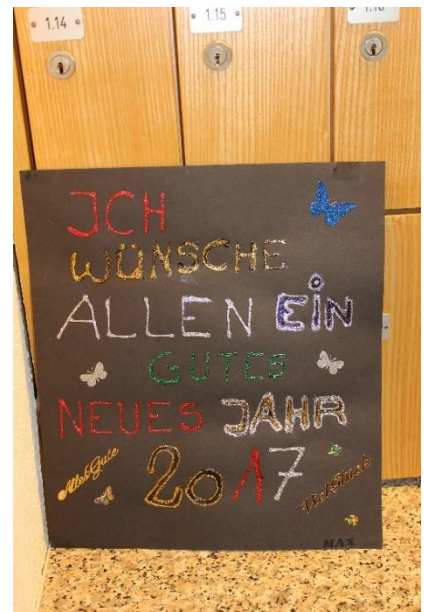 1.14
1.15
1.16
JCH
WÜNSCHE
ALLEN EIN
GUTES
NEUES JAHR
2017
Alles Gute
Viel Glück
MAX